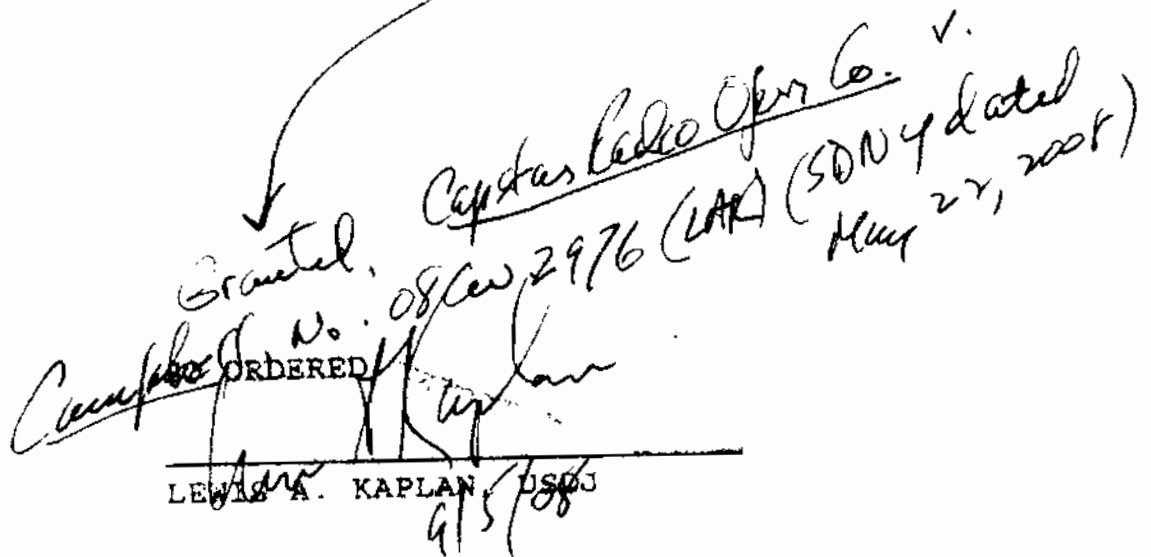 Granted. Capstar Radio Oper. Co. v.
Campbell, No. 08 Civ 2976 (LAK) (SDNY dated
May 22, 2008)
SO ORDERED
LEWIS A. KAPLAN, USDJ
9/5/08